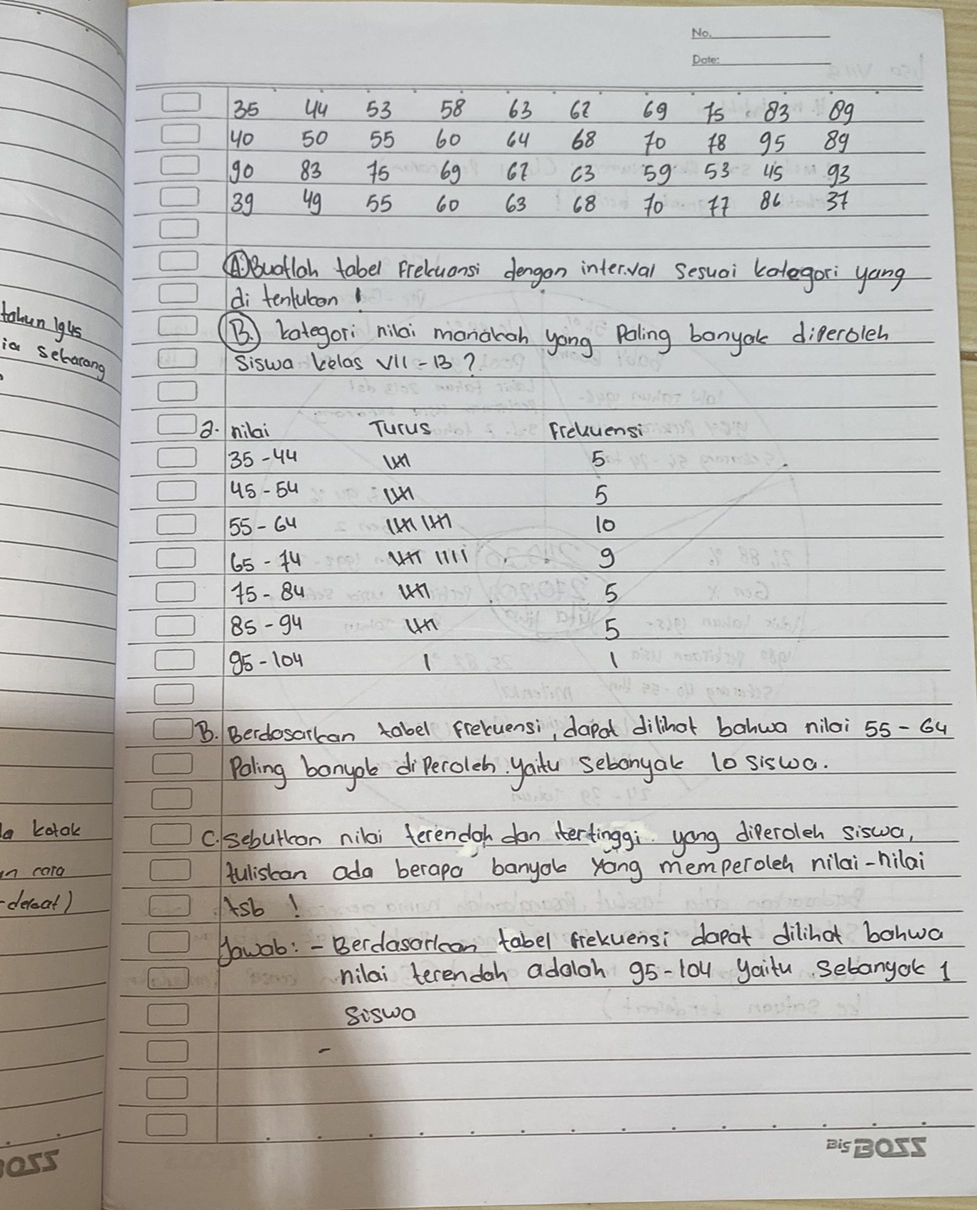 No.
Date:
35 44 53 58 63 62 69 75 83 89
40 50 55 60 64 68 70 78 95 89
90 83 75 69 67 63 59 53 45 93
39 49 55 60 63 68 70 77 86 37
A. Buatlah tabel Frekuansi dengan interval sesuai kategori yang
di tentukan !
B. kategori nilai manakah yang Paling banyak diperoleh
Siswa kelas VII - B ?
a. nilai Turus Frekuensi
35 - 44 5
45 - 54 5
55 - 64 10
65 - 74 IIII 9
75 - 84 5
85 - 94 5
95 - 104 I 1
B. Berdasarkan tabel frekuensi, dapat dilihat bahwa nilai 55 - 64
Paling banyak diperoleh yaitu sebanyak 10 siswa.
C. Sebutkan nilai terendah dan tertinggi yang diperoleh siswa,
tuliskan ada berapa banyak yang memperoleh nilai-nilai
tsb !
Jawab : - Berdasarkan tabel frekuensi dapat dilihat bahwa
nilai terendah adalah 95-104 yaitu sebanyak 1
siswa
-
Big BOSS
tahun 1945
ia sekarang
a kotak
n cara
derajat)
BOSS